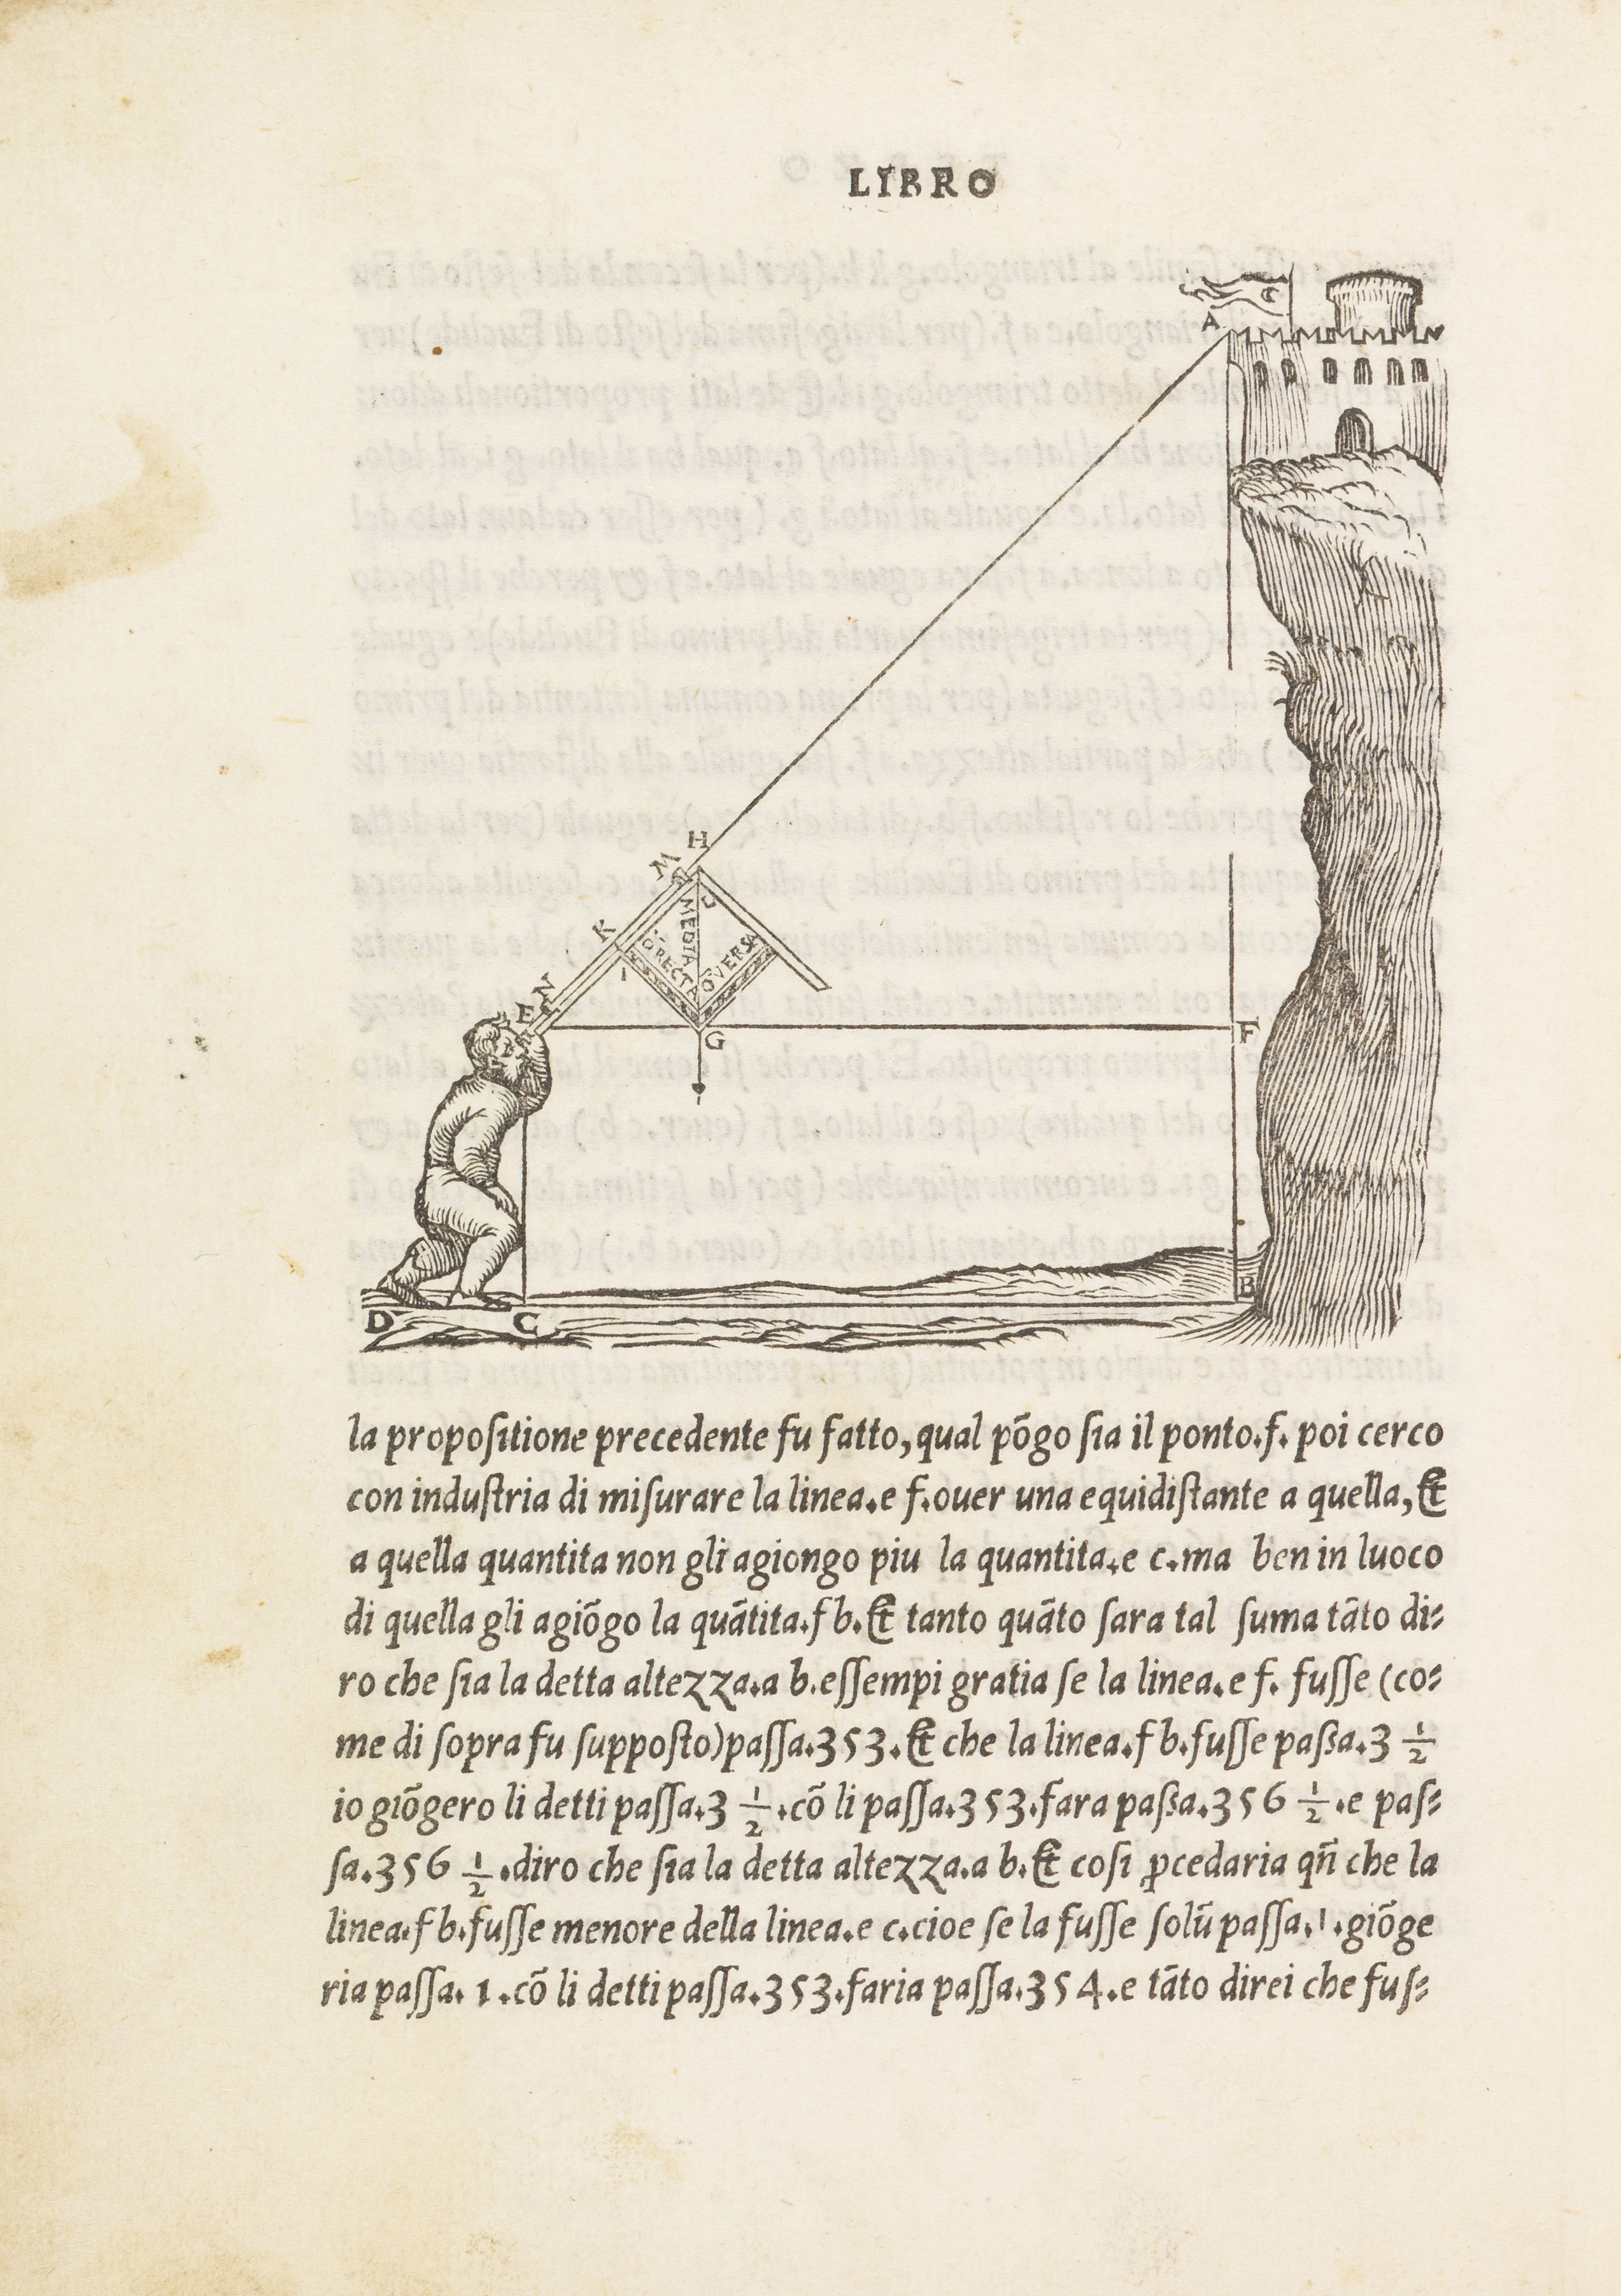 LIBRO
A
H
M
K
MEDIA
O. RECTA
O VERSA
I
N
E
G
F
B
D
C
la propoſitione precedente fu fatto, qual põgo ſia il ponto.f. poi cerco
con induſtria di miſurare la linea.e f.ouer una equidiſtante a quella, &
a quella quantita non gli agiongo piu la quantita.e c.ma ben in luoco
di quella gli agiõgo la quãtita.f b.& tanto quãto ſara tal ſuma tãto di-
ro che ſia la detta altezza.a b.eſſempi gratia ſe la linea.e f. fuſſe (co-
me di ſopra fu ſuppoſto)paſſa.353.& che la linea.f b.fuſſe paßa.3 1/2
io giõgero li detti paſſa.3 1/2.cõ li paſſa.353.fara paßa.356 1/2.e paſ-
ſa.356 1/2.diro che ſia la detta altezza.a b.& coſi ꝓcedaria qñ che la
linea.f b.fuſſe menore della linea.e c.cioe ſe la fuſſe ſolũ paſſa.1.giõge
ria paſſa. 1.cõ li detti paſſa.353.faria paſſa.354.e tãto direi che fuſ-